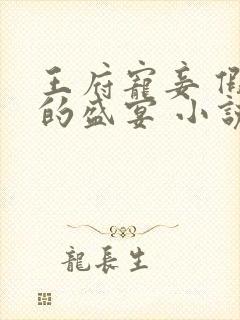 王府寵妾
的盛宴 小
龍長生